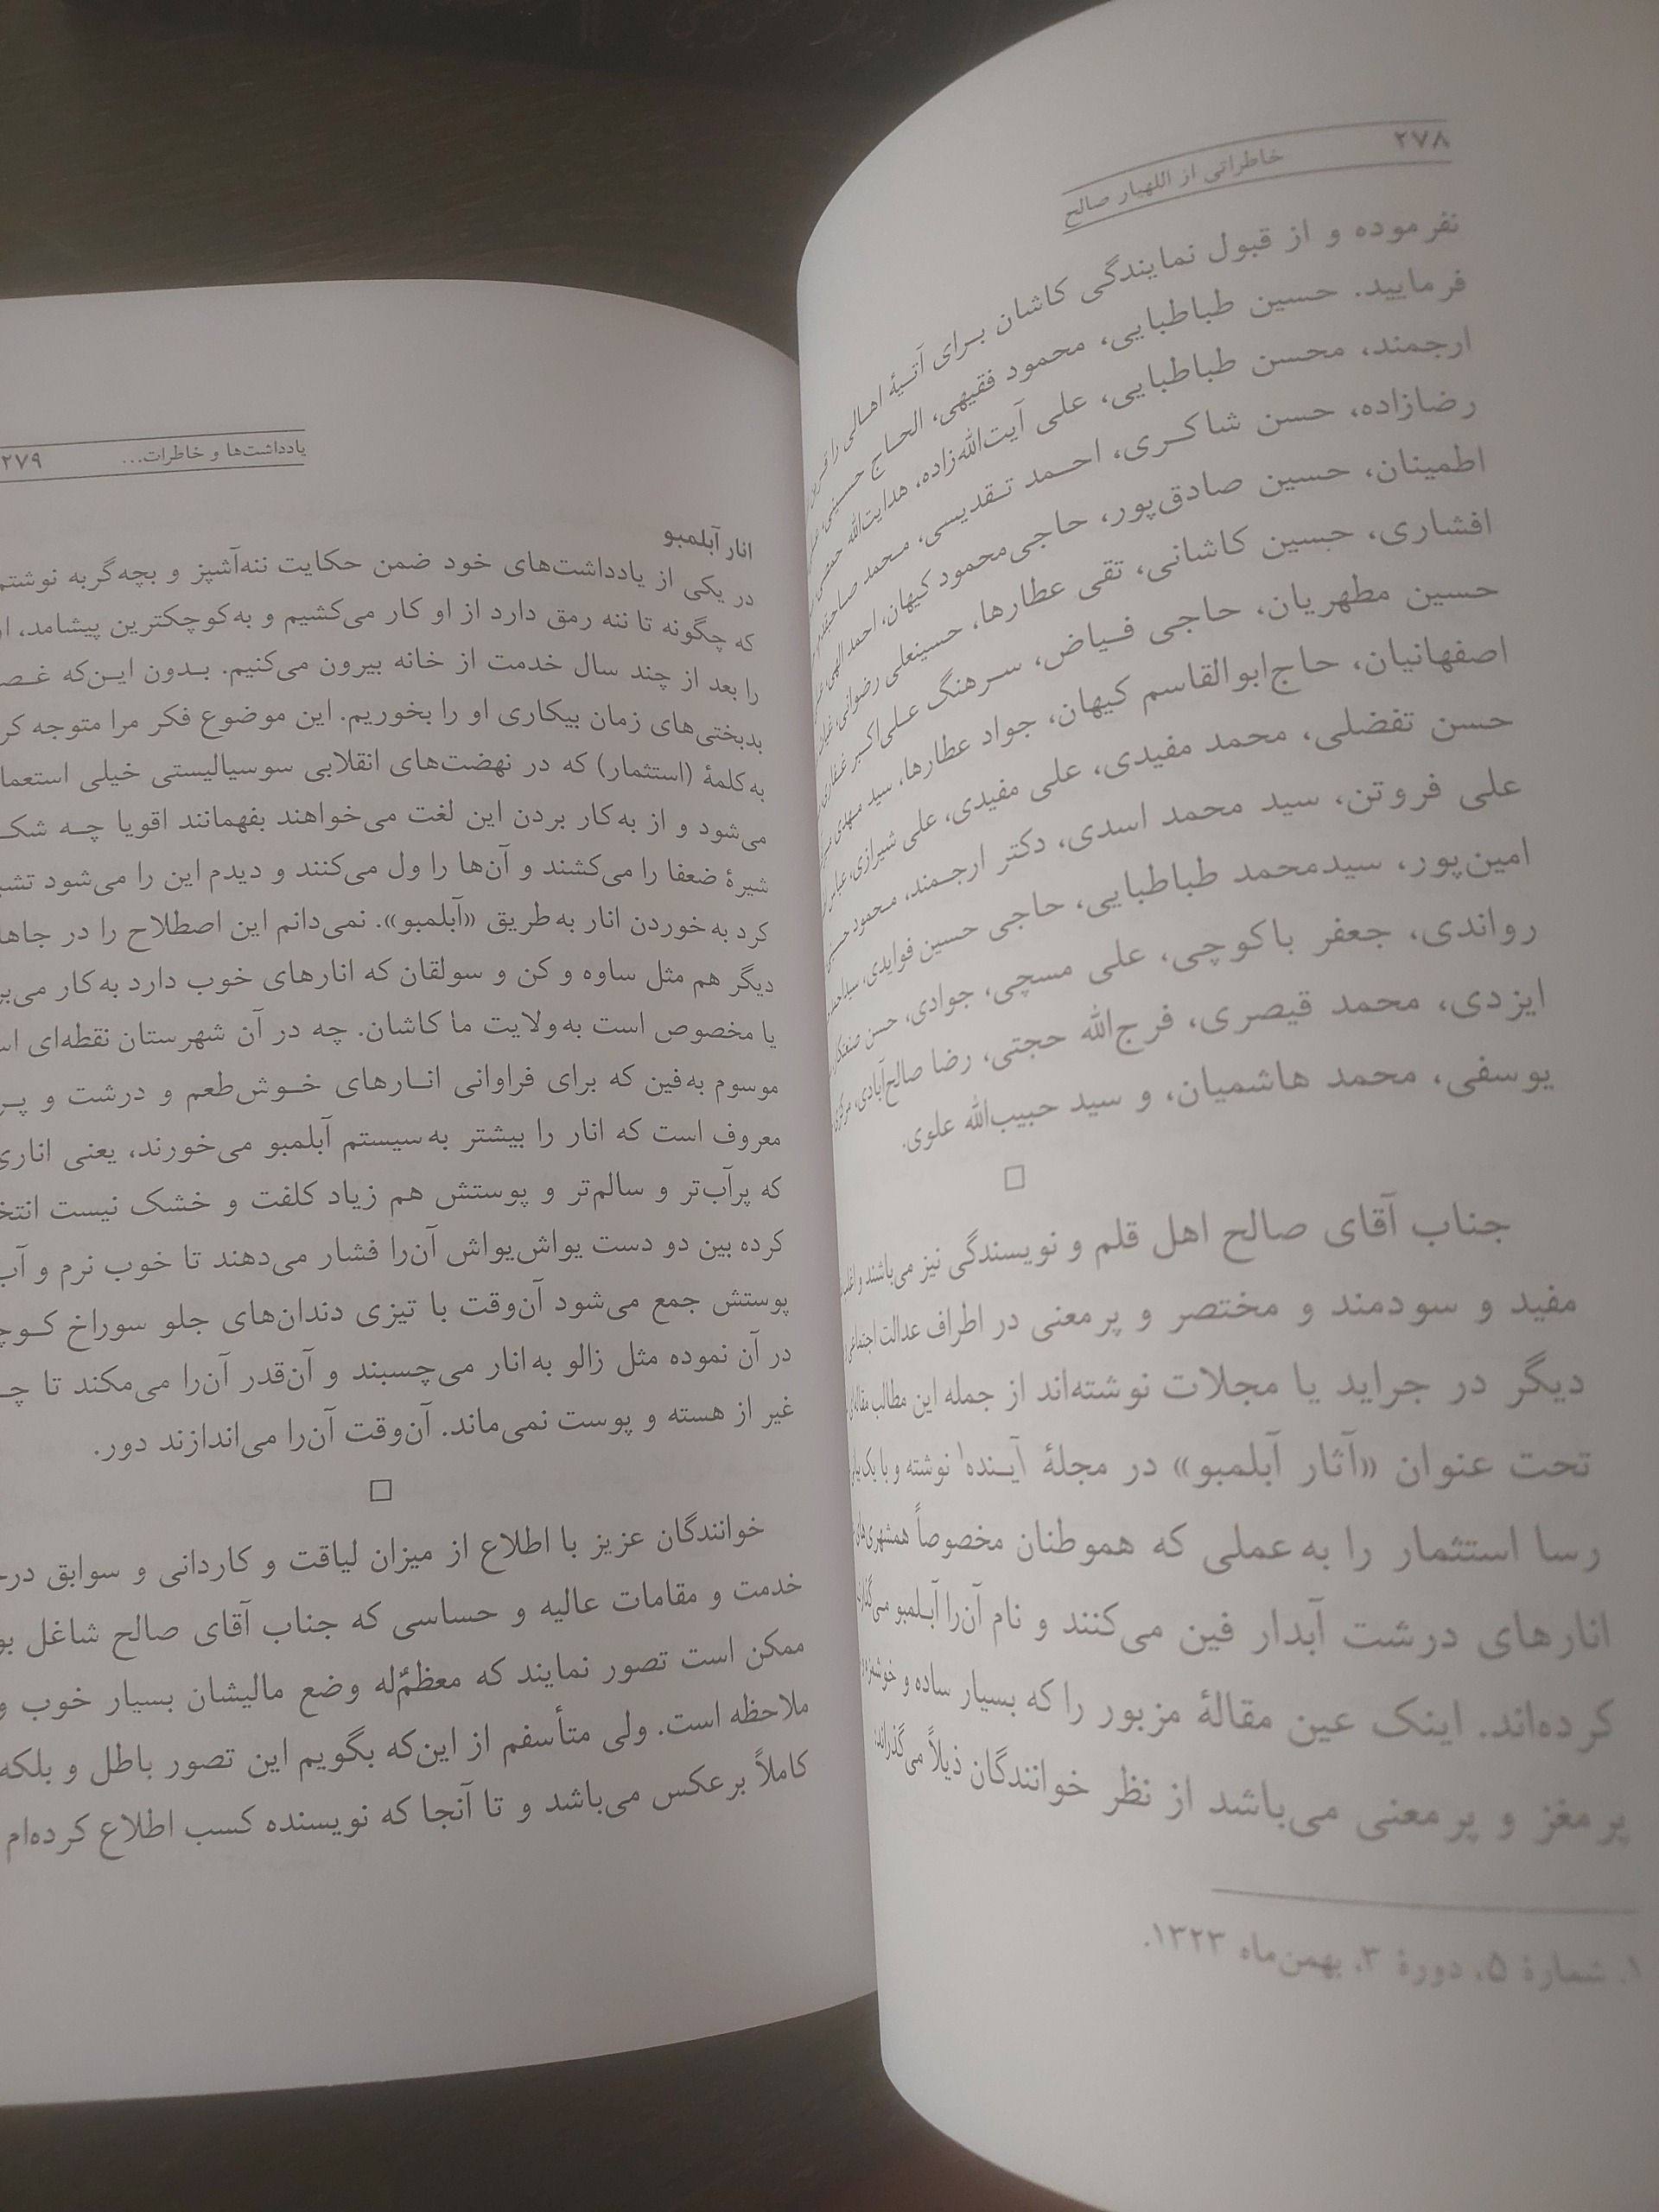 ۲۷۸
خاطراتی از اللهیار صالح
نفرموده و از قبول نمایندگی کاشان برای آتیهٔ اهالی را
فرمایید. حسین طباطبایی، محمود فقیهی، الحاج حسینی،
ارجمند، محسن طباطبایی، علی آیت‌الله‌زاده، هدایت‌الله
رضازاده، حسن شاکری، احمد تقدیسی، محمد
اطمینان، حسین صادق‌پور، حاجی‌محمود کیهان، احمد
افشاری، حسین کاشانی، تقی عطارها، حسینعلی رضوانی،
حسین مطهریان، حاجی فیاض، سرهنگ علی‌اکبر غفاری،
اصفهانیان، حاج‌ابوالقاسم کیهان، جواد عطارها، سید مهدی
حسن تفضلی، محمد مفیدی، علی مفیدی، علی شیرازی، عباس
علی فروتن، سید محمد اسدی، دکتر ارجمند، محمود
امین‌پور، سیدمحمد طباطبایی، حاجی حسین فوایدی،
رواندی، جعفر باکوچی، علی مسچی، جوادی، حسن
ایزدی، محمد قیصری، فرج‌الله حجتی، رضا صالح‌آبادی،
یوسفی، محمد هاشمیان، و سید حبیب‌الله علوی.
جناب آقای صالح اهل قلم و نویسندگی نیز می‌باشند و
مفید و سودمند و مختصر و پرمعنی در اطراف عدالت اجتماعی
دیگر در جراید یا مجلات نوشته‌اند از جمله این مطالب
تحت عنوان «آثار آبلمبو» در مجلهٔ آینده۱ نوشته و با یک
رسا استثمار را به‌عملی که هموطنان مخصوصاً همشهری‌های
انارهای درشت آبدار فین می‌کنند و نام آن‌را آبلمبو
کرده‌اند. اینک عین مقالهٔ مزبور را که بسیار ساده و
پرمغز و پرمعنی می‌باشد از نظر خوانندگان ذیلاً می‌گذراند،
۱. شمارهٔ ۵، دورهٔ ۳، بهمن‌ماه ۱۳۲۳.
یادداشت‌ها و خاطرات...
۲۷۹
انار آبلمبو
در یکی از یادداشت‌های خود ضمن حکایت ننه‌آشپز و بچه‌گربه نوشتم
که چگونه تا ننه رمق دارد از او کار می‌کشیم و به‌کوچکترین پیشامد،
را بعد از چند سال خدمت از خانه بیرون می‌کنیم. بدون این‌که
بدبختی‌های زمان بیکاری او را بخوریم. این موضوع فکر مرا متوجه
به‌کلمهٔ (استثمار) که در نهضت‌های انقلابی سوسیالیستی خیلی
می‌شود و از به‌کار بردن این لغت می‌خواهند بفهمانند اقویا چه
شیرهٔ ضعفا را می‌کشند و آن‌ها را ول می‌کنند و دیدم این را می‌شود
کرد به‌خوردن انار به‌طریق «آبلمبو». نمی‌دانم این اصطلاح را در
دیگر هم مثل ساوه و کن و سولقان که انارهای خوب دارد به‌کار
یا مخصوص است به‌ولایت ما کاشان. چه در آن شهرستان نقطه‌ای
موسوم به‌فین که برای فراوانی انارهای خوش‌طعم و درشت و
معروف است که انار را بیشتر به‌سیستم آبلمبو می‌خورند، یعنی اناری
که پرآب‌تر و سالم‌تر و پوستش هم زیاد کلفت و خشک نیست
کرده بین دو دست یواش‌یواش آن‌را فشار می‌دهند تا خوب نرم و
پوستش جمع می‌شود آن‌وقت با تیزی دندان‌های جلو سوراخ
در آن نموده مثل زالو به‌انار می‌چسبند و آن‌قدر آن‌را می‌مکند تا
غیر از هسته و پوست نمی‌ماند. آن‌وقت آن‌را می‌اندازند دور.
خوانندگان عزیز با اطلاع از میزان لیاقت و کاردانی و سوابق
خدمت و مقامات عالیه و حساسی که جناب آقای صالح شاغل
ممکن است تصور نمایند که معظمٌ‌له وضع مالیشان بسیار خوب و
ملاحظه است. ولی متأسفم از این‌که بگویم این تصور باطل و بلکه
کاملاً برعکس می‌باشد و تا آنجا که نویسنده کسب اطلاع کرده‌ام